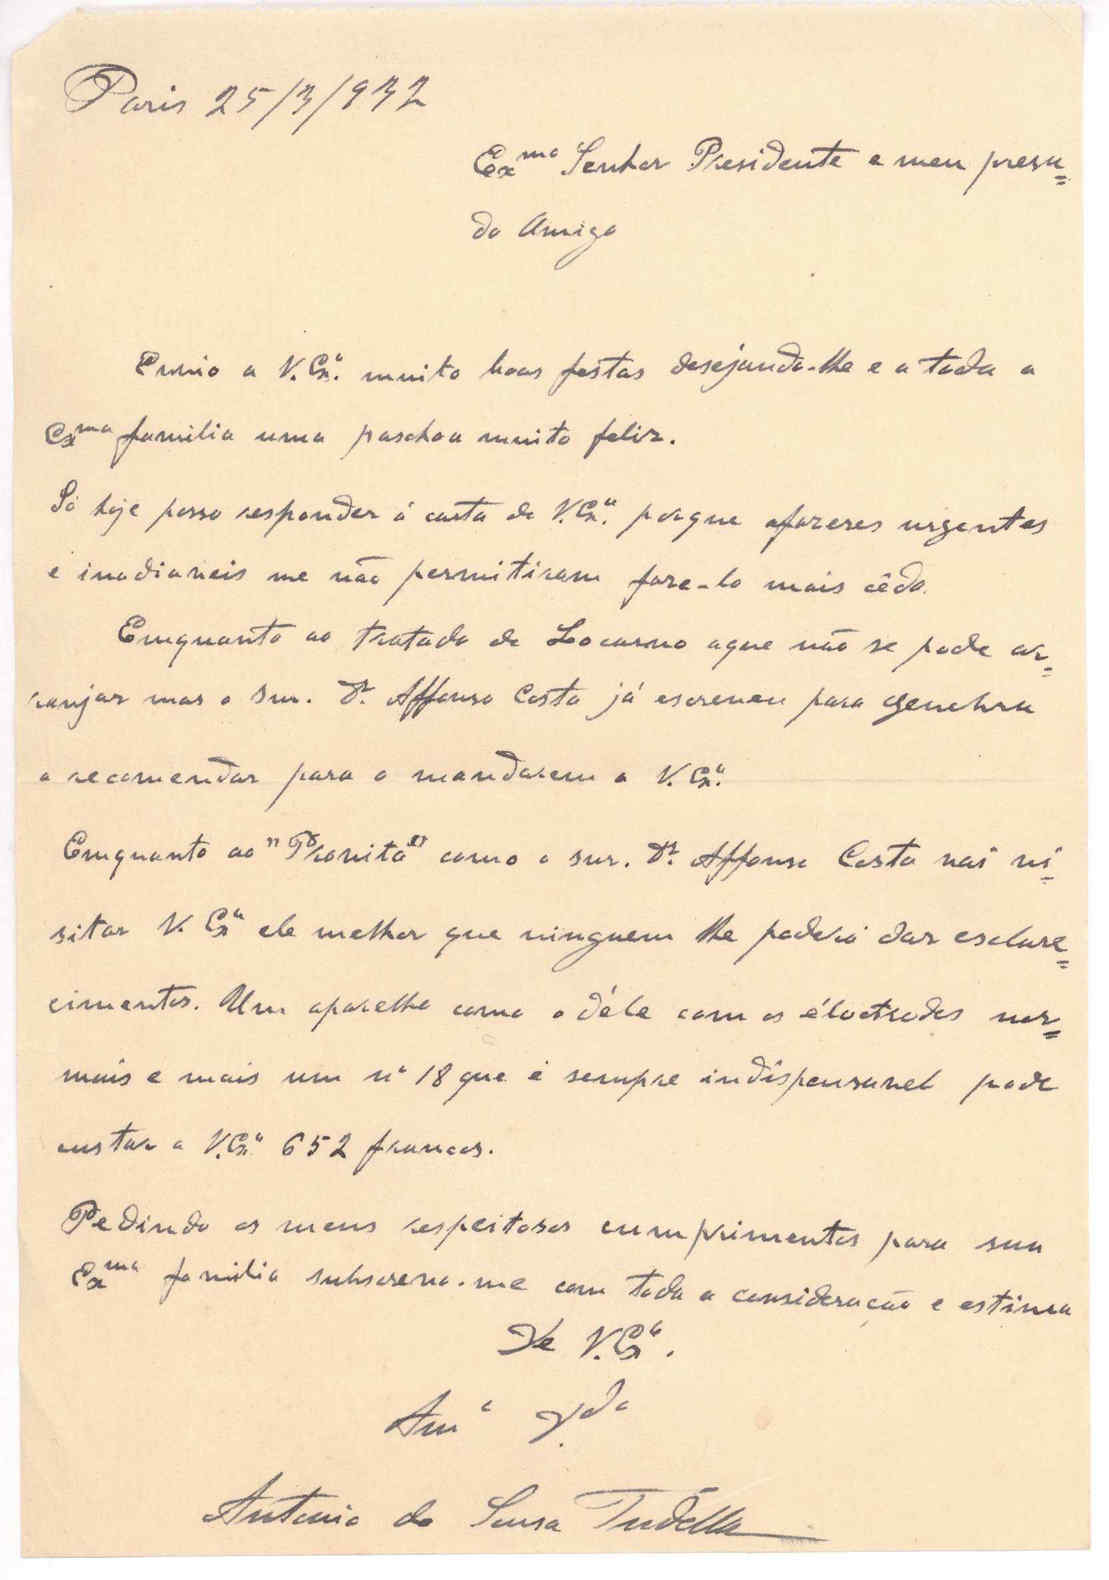 Paris 25/3/932
Exmo Senhor Presidente e meu presa=
do Amigo
Envio a V. Exa. muito boas festas desejando-lhe e a toda a
Exma familia uma paschoa muito feliz.
Só hoje posso responder á carta de V. Exa. porque afazeres urgentes
e inadiaveis me não permitiram faze-lo mais cêdo.
Emquanto ao tratado de Locarno aque não se pode ar=
ranjar mas o Snr. Dr. Affonso Costa já escreveu para Genebra
a recomendar para o mandarem a V. Exa.
Emquanto ao "Pronita" como o snr. Dr. Affonso Costa vai vi=
sitar V. Exa ele melhor que ninguem lhe poderá dar esclare=
cimentos. Um aparelho como o déle com os électrodes nor=
mais e mais um nº 18 que é sempre indispensavel pode
custar a V. Exa 652 francos.
Pedindo os meus respeitosos cumprimentos para sua
Exma familia subscrevo-me com toda a consideração e estima
De V. Exa.
Amo
Antonio de Sousa Tudélla